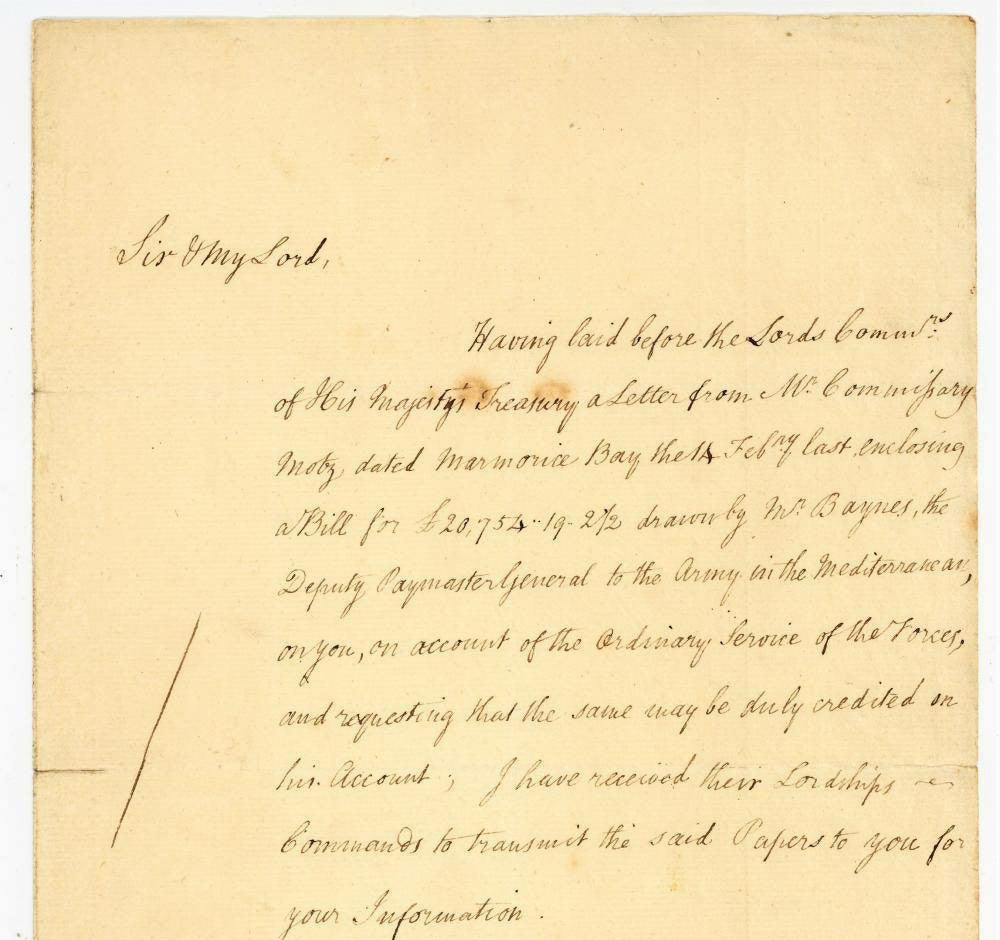 Sir & My Lord,
Having laid before the Lords Commrs
of His Majesty's Treasury a Letter from Mr. Commissary
Motz, dated Marmorice Bay the 14 Febry last, enclosing
a Bill for £20,754..19-2½ drawn by Mr. Baynes, the
Deputy Paymaster General to the Army in the Mediterranean,
on you, on account of the Ordinary Service of the Forces,
and requesting that the same may be duly credited on
his Account; I have received their Lordships
Commands to transmit the said Papers to you for
your Information.